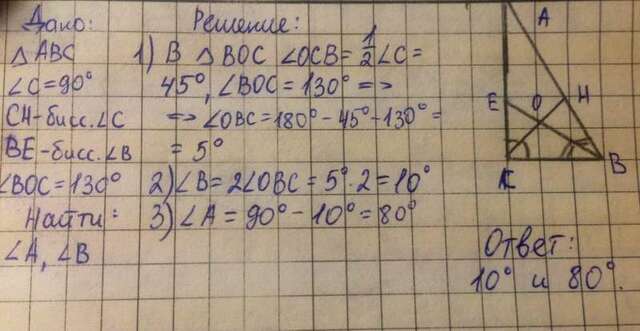 Дано:
△ABC
∠C=90°
CH-бисс.∠C
BE-бисс.∠B
∠BOC=130°
Найти:
∠A, ∠B
Решение:
1) В △BOC ∠OCB=1/2∠C=
45°, ∠BOC=130° =>
=> ∠OBC=180°-45°-130°=
=5°
2) ∠B=2∠OBC=5°·2=10°
3) ∠A=90°-10°=80°
A
E
O
H
C
B
Ответ:
10° и 80°.